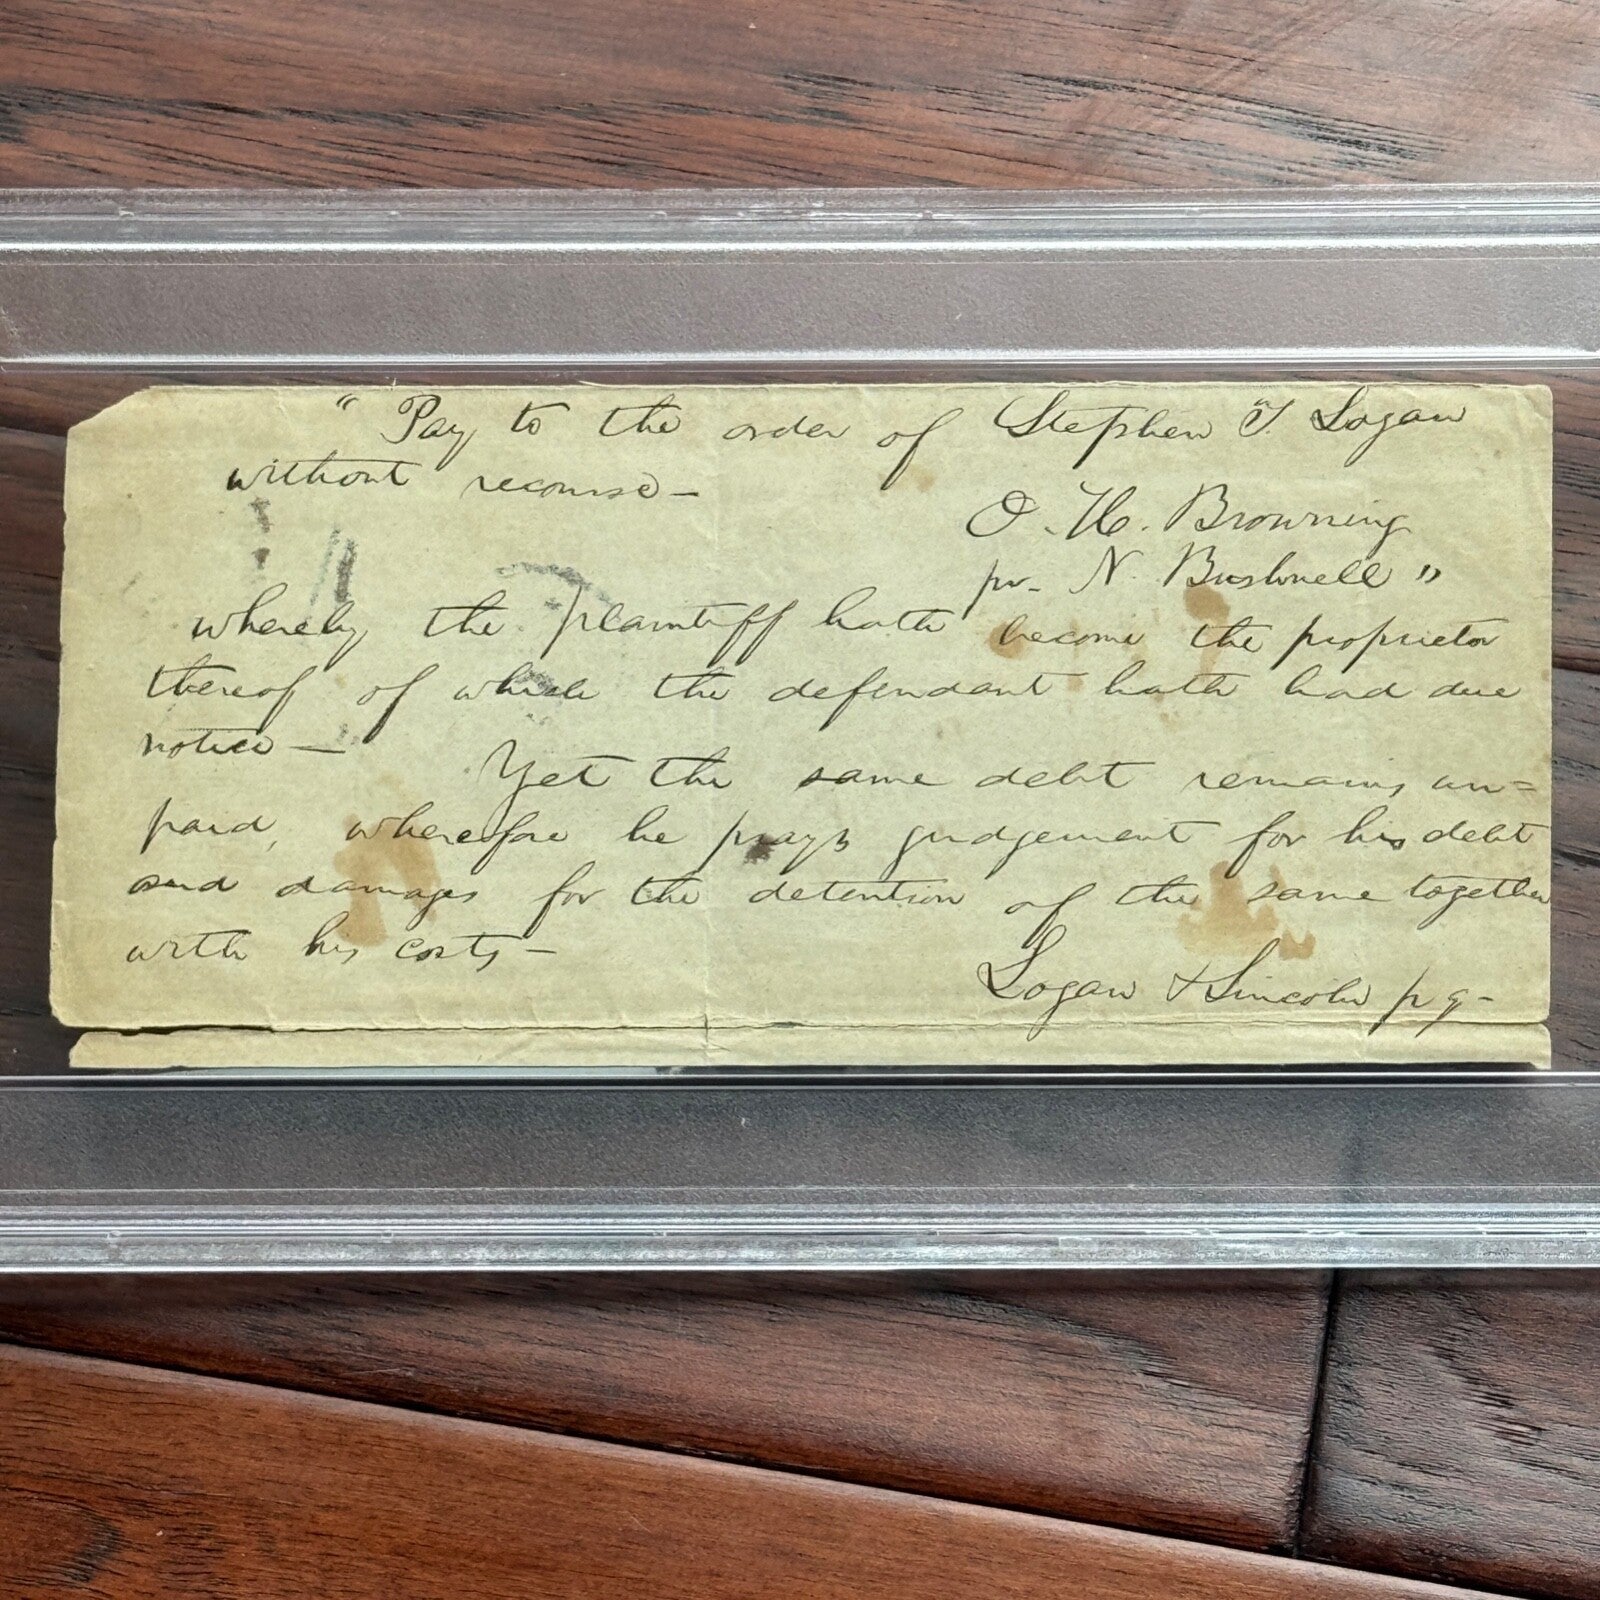 "Pay to the order of Stephen T. Logan
without recourse -
O. H. Browning
pr. N. Bushnell"
whereby the plaintiff hath become the proprietor
thereof of which the defendant hath had due
notice —
Yet the same debt remains un=
paid, wherefore he prays judgement for his debt
and damages for the detention of the same together
with his costs -
Logan & Lincoln p q -